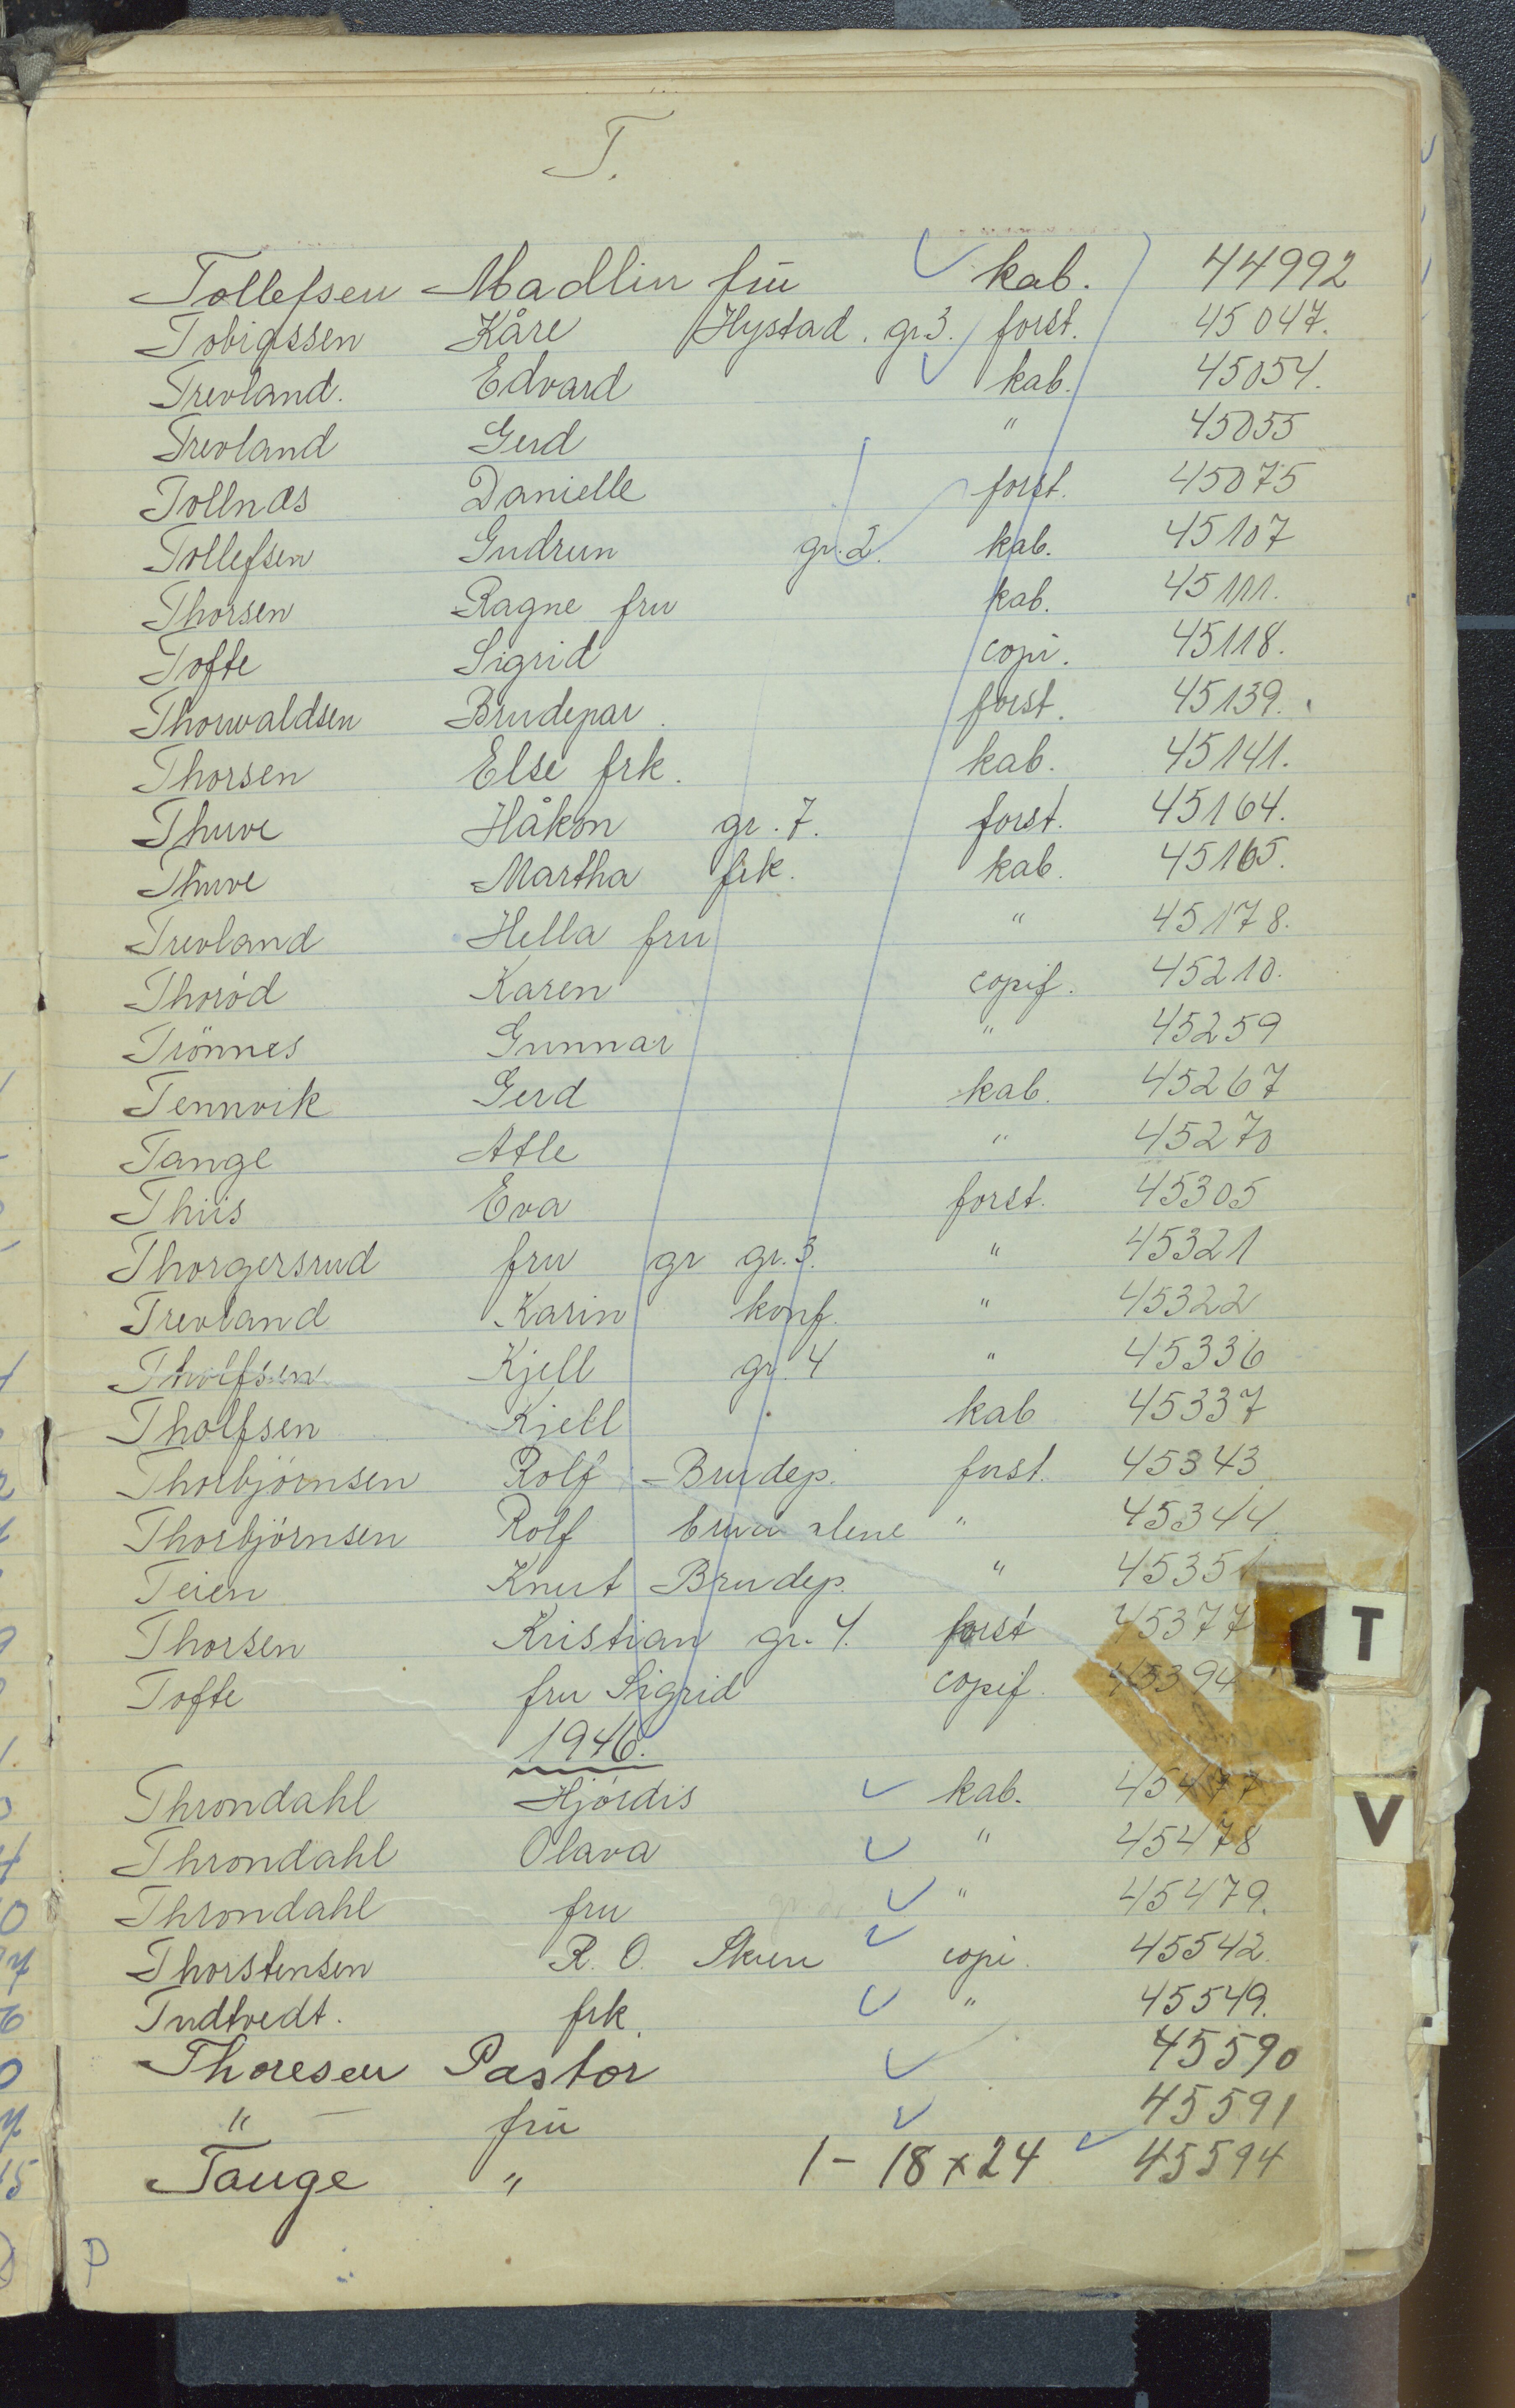 T.
Tollefsen Madlin frü kab. 44992
Tobiassen Kåre Hystad. gr 3. forst. 45047.
Trevland. Edvard kab. 45054.
Trevland Gerd " 45055
Tollnæs Danielle forst. 45075
Tollefsen Gudrun gr. 2. kab. 45107
Thorsen Ragne fru kab. 45111.
Tofte Sigrid copi. 45118.
Thorwaldsen Brudepar. forst. 45139.
Thorsen Else frk. kab. 45141.
Thuve Håkon gr. 7. forst. 45164.
Thuve Martha frk. kab. 45165.
Trevland Hella fru " 45178.
Thoród Karen copif. 45210.
Trönnes Gunnar " 45259
Tennvik Gerd kab. 45267
Tange Atle " 45270
Thiis Eva forst. 45305
Thorgersrud fru gr gr. 3. " 45321
Trevland Karin konf. " 45322
Tholfsen Kjell gr. 4 " 45336
Tholfsen Kjell kab 45337
Thorbjörnsen Rolf - Brudep. forst. 45343
Thorbjörnsen Rolf brud alene " 45344
Teien Knut Brudep. " 45351
Thorsen Kristian gr. 4. forst 45377
Tofte fru Sigrid copif. 45394
1946.
Throndahl Hjördis kab. 45477
Throndahl Olava " 45478
Throndahl fru " 45479.
Thorstensen R. O. Skien copi. 45542.
Tudtvedt. frk. " 45549.
Thoresen Pastor 45590
" - frü 45591
Tauge " 1 - 18 x 24 45594
P
T
V